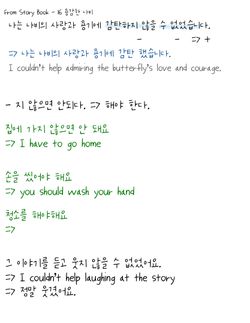 From Story Book - 16 용감한 나비
나는 나비의 사랑과 용기에 감탄하지 않을 수 없었습니다.
- - => +
=> 나는 나비의 사랑과 용기에 감탄 했습니다.
I couldn't help admiring the butterfly's love and courage.
- 지 않으면 안되다. => 해야 한다.
집에 가지 않으면 안 돼요
=> I have to go home
손을 씼어야 해요
=> you should wash your hand
청소를 해야해요
=>
그 이야기를 듣고 웃지 않을 수 없었어요.
=> I couldn't help laughing at the story
=> 정말 웃겼어요.